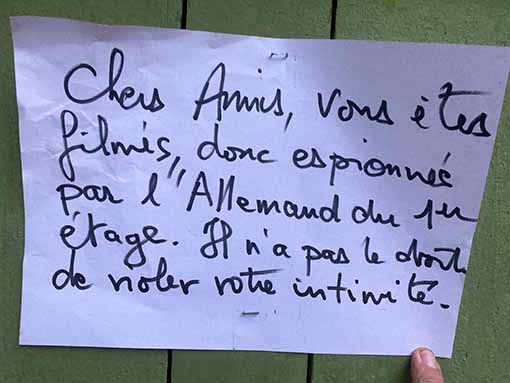 Chers Amis, vous êtes
filmés, donc espionnés
par l'"Allemand du 1er
étage. Il n'a pas le droit
de violer votre intimité.